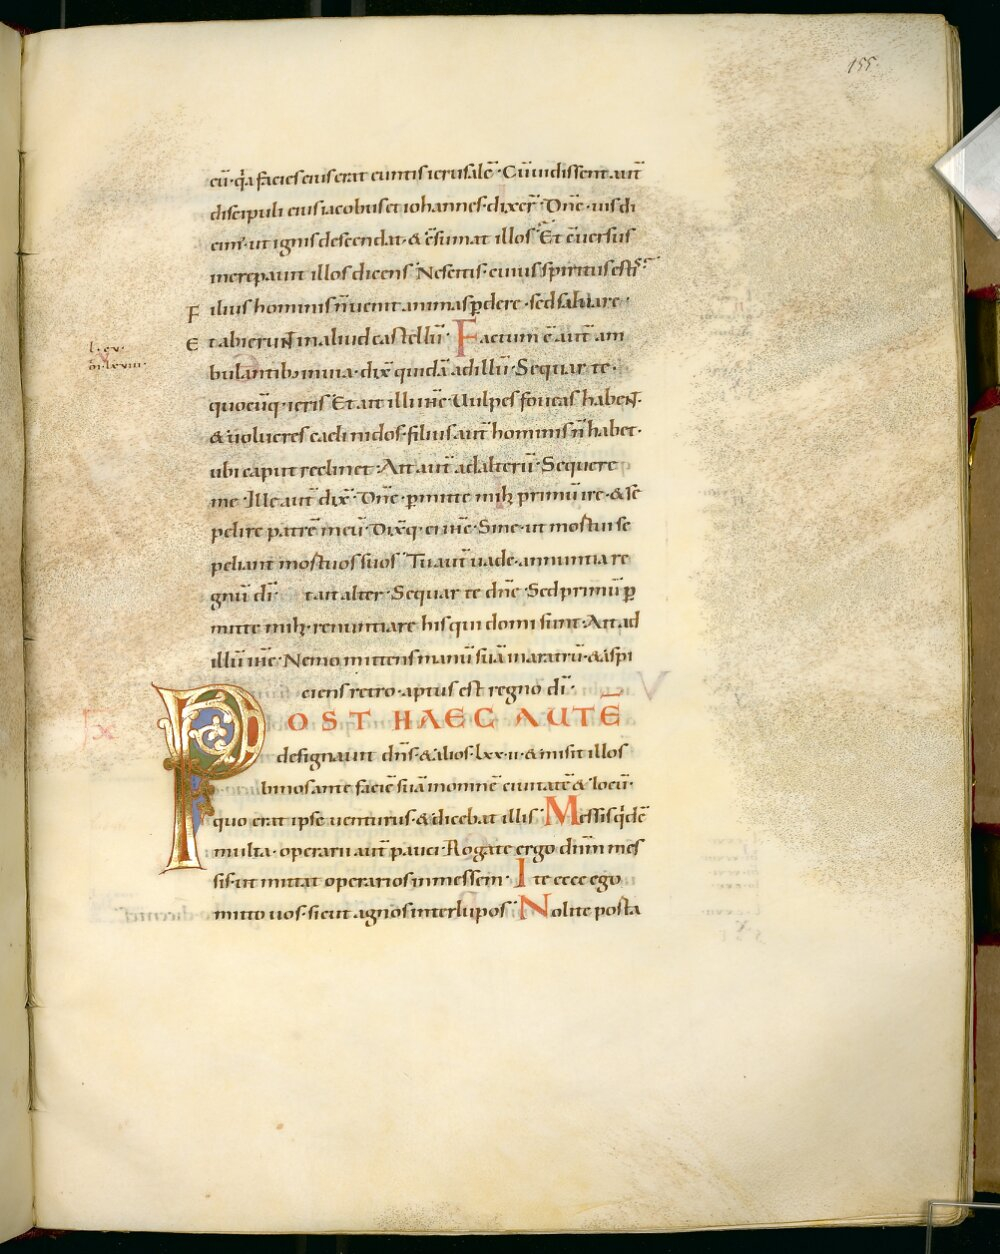 155.
cū·qa facies eius erat euntis ierusalē· Cū uidissent aut̄
discipuli eius iacobus et iohannes·dixer̄· Dn̄e·uis di
cim̄·ut ignis descendat·& c̄sumat illos· Et c̄uersus
increpauit illos dicens· Nescitis·cuius spiritus estis·
F ilius hominis n̄ uenit animas ꝑdere·sed saluare·
E t abierunt in aliud castellū· Factum ē aut̄ am
bulantib; in uia·dix̄ quidā ad illū· Sequar te·
quocūq·ieris· Et ait illi ih̄c· Uulpes foueas habent·
& uolucres caeli nidos·filius aut̄ hominis n̄ habet·
ubi caput reclinet· Ait aut̄ ad alterū· Sequere
me· Ille aut̄ dix̄· Dn̄e·ꝑmitte mih primū ire·& se
pelire patrē meū· Dixq· ei ih̄c· Sine·ut mortui se
peliant mortuos suos· Tu aut̄ uade·annuntia re
gnū dī· t ait alter· Sequar te dn̄e· Sed primū ꝑ
mitte mih·renuntiare his qui domi sunt· Ait ad
illū ih̄c· Nemo mittens manū suā in aratrū·& aspi
ciens retro·aptus est regno dī·
POST HAEC AUTĒ
designauit dn̄s·& alios·lxx·ii·& misit illos
binos ante faciē suā in omnē ciuitatē & locū·
quo erat ipse uenturus·& dicebat illis· Messis qdē
multa·operarii aut̄ pauci· Rogate ergo dnm̄ mes
sis·ut mittat operarios in messem· Ite ecce ego
mitto uos·sicut agnos inter lupos· Nolite porta